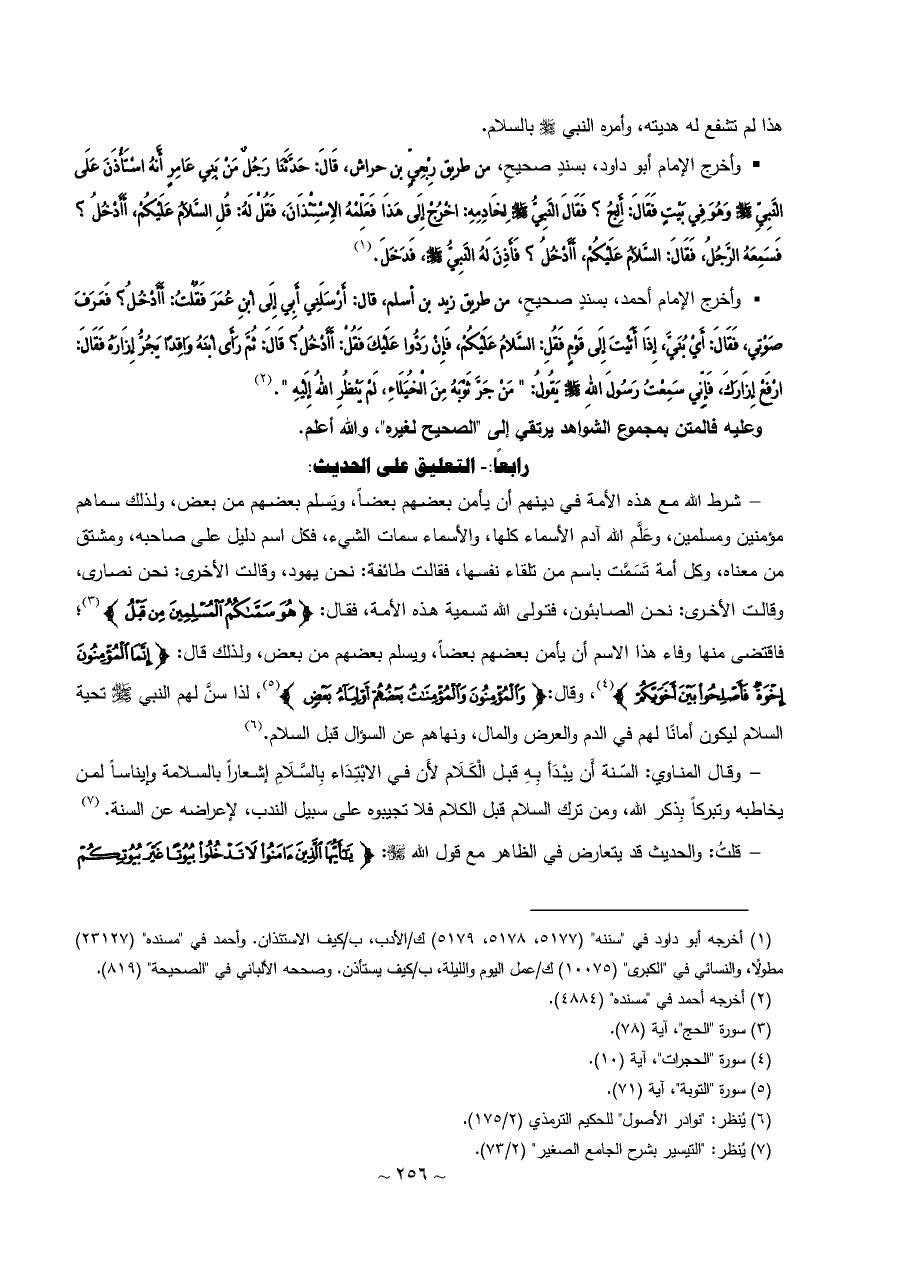 هذا لم تشفع له هديته، وأمره النبي ﷺ بالسلام.
▪ وأخرج الإمام أبو داود، بسندٍ صحيحٍ، من طريق رِبْعِيِّ بن حراش، قَالَ: حَدَّثَنَا رَجُلٌ مَنْ بَنِي عَامِرٍ أَنَّهُ اسْتَأْذَنَ عَلَى
النَّبِيِّ ﷺ وَهُوَ فِي بَيْتٍ فَقَالَ: أَلِجُ ؟ فَقَالَ النَّبِيُّ ﷺ لِخَادِمِهِ: اخْرُجْ إِلَى هَذَا فَعَلِّمْهُ الِاسْتِئْذَانَ، فَقُلْ لَهُ: قُلِ السَّلَامُ عَلَيْكُمْ، أَأَدْخُلُ ؟
فَسَمِعَهُ الرَّجُلُ، فَقَالَ: السَّلَامُ عَلَيْكُمْ، أَأَدْخُلُ ؟ فَأَذِنَ لَهُ النَّبِيُّ ﷺ، فَدَخَلَ.(١)
▪ وأخرج الإمام أحمد، بسندٍ صحيحٍ، من طريق زيد بن أسلم، قال: أَرْسَلَنِي أَبِي إِلَى ابْنِ عُمَرَ فَقُلْتُ: أَأَدْخُلُ؟ فَعَرَفَ
صَوْتِي، فَقَالَ: أَيْ بُنَيَّ، إِذَا أَتَيْتَ إِلَى قَوْمٍ فَقُلْ: السَّلَامُ عَلَيْكُمْ، فَإِنْ رَدُّوا عَلَيْكَ فَقُلْ: أَأَدْخُلُ؟ قَالَ: ثُمَّ رَأَى ابْنَهُ وَاقِدًا يَجُرُّ إِزَارَهُ فَقَالَ:
ارْفَعْ إِزَارَكَ، فَإِنِّي سَمِعْتُ رَسُولَ اللهِ ﷺ يَقُولُ: " مَنْ جَرَّ ثَوْبَهُ مِنَ الْخُيَلَاءِ، لَمْ يَنْظُرِ اللهُ إِلَيْهِ ".(٢)
وعليه فالمتن بمجموع الشواهد يرتقي إلى "الصحيح لغيره"، والله أعلم.
رابعاً:- التعليق على الحديث:
– شرط الله مع هذه الأمة في دينهم أن يأمن بعضهم بعضاً، ويَسلم بعضهم من بعض، ولذلك سماهم
مؤمنين ومسلمين، وعَلَّم الله آدم الأسماء كلها، والأسماء سمات الشيء، فكل اسم دليل على صاحبه، ومشتق
من معناه، وكل أمة تَسَمَّت باسم من تلقاء نفسها، فقالت طائفة: نحن يهود، وقالت الأخرى: نحن نصارى،
وقالت الأخرى: نحن الصابئون، فتولى الله تسمية هذه الأمة، فقال: ﴿ هُوَ سَمَّىٰكُمُ ٱلْمُسْلِمِينَ مِن قَبْلُ ﴾(٣)؛
فاقتضى منها وفاء هذا الاسم أن يأمن بعضهم بعضاً، ويسلم بعضهم من بعض، ولذلك قال: ﴿ إِنَّمَا ٱلْمُؤْمِنُونَ
إِخْوَةٌ فَأَصْلِحُوا۟ بَيْنَ أَخَوَيْكُمْ ﴾(٤)، وقال: ﴿ وَٱلْمُؤْمِنُونَ وَٱلْمُؤْمِنَٰتُ بَعْضُهُمْ أَوْلِيَآءُ بَعْضٍ ﴾(٥)، لذا سنَّ لهم النبي ﷺ تحية
السلام ليكون أمانًا لهم في الدم والعرض والمال، ونهاهم عن السؤال قبل السلام.(٦)
– وقال المناوي: السّنة أَن يبْدَأ بِهِ قبل الْكَلَام لأَن في الابْتِدَاء بِالسَّلَامِ إشعاراً بالسلامة وإيناساً لمن
يخاطبه وتبركاً بِذكر الله، ومن ترك السلام قبل الكلام فلا تجيبوه على سبيل الندب، لإعراضه عن السنة.(٧)
– قلتُ: والحديث قد يتعارض في الظاهر مع قول الله ﷻ: ﴿ يَٰٓأَيُّهَا ٱلَّذِينَ ءَامَنُوا۟ لَا تَدْخُلُوا۟ بُيُوتًا غَيْرَ بُيُوتِكُمْ
(١) أخرجه أبو داود في "سننه" (٥١٧٧، ٥١٧٨، ٥١٧٩) ك/الأدب، ب/كيف الاستئذان. وأحمد في "مسنده" (٢٣١٢٧)
مطولًا، والنسائي في "الكبرى" (١٠٠٧٥) ك/عمل اليوم والليلة، ب/كيف يستأذن. وصححه الألباني في "الصحيحة" (٨١٩).
(٢) أخرجه أحمد في "مسنده" (٤٨٨٤).
(٣) سورة "الحج"، آية (٧٨).
(٤) سورة "الحجرات"، آية (١٠).
(٥) سورة "التوبة"، آية (٧١).
(٦) يُنظر: "نوادر الأصول" للحكيم الترمذي (١٧٥/٢).
(٧) يُنظر: "التيسير بشرح الجامع الصغير" (٧٣/٢).
~ ٢٥٦ ~